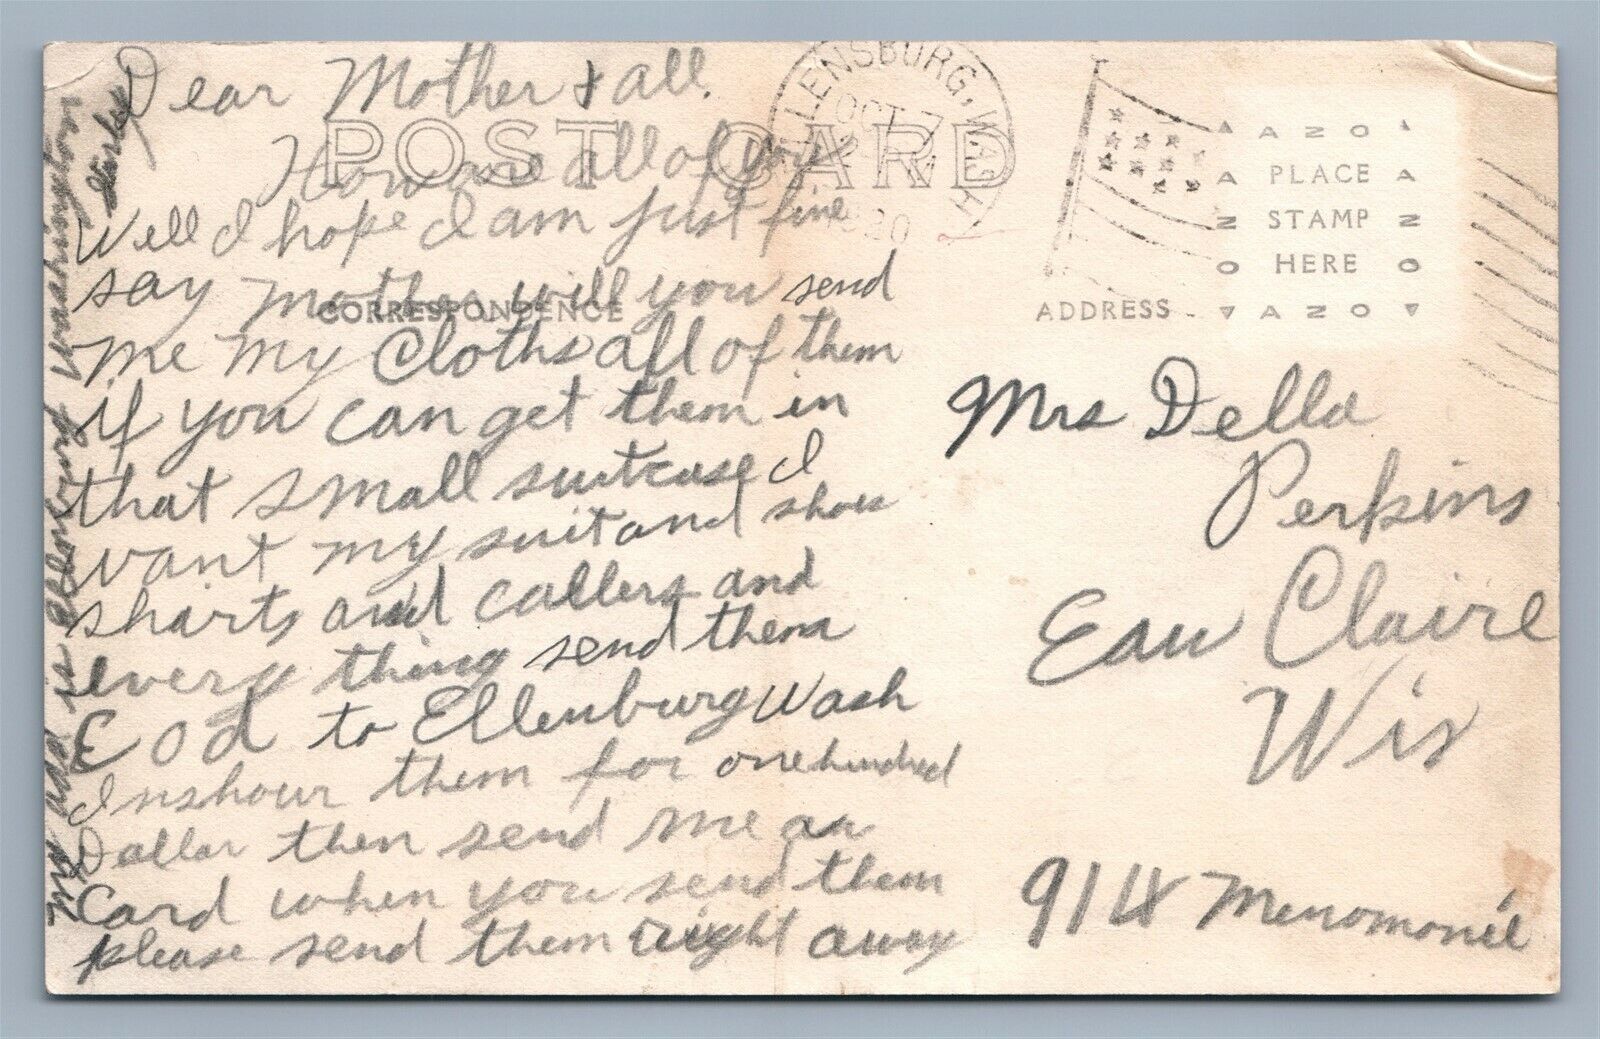 Dear Mother & all.
How are all of you
Well I hope I am just fine
say Mother will you send
me my Cloths all of them
if you can get them in
that small suitcase I
want my suit and shoes
sharts and callers and
every thing send them
C o d to Ellenburg Wash
Inshour them for one hundred
Dallar then send me an
Card when you send them
please send them right away
My add is Ellenburg Washington
POST CARD
CORRESPONDENCE
ELLENSBURG, WASH
OCT 7
1920
AZO
PLACE
STAMP
HERE
AZO
ADDRESS
Mrs Della
Perkins
Eau Claire
Wis
914 Menomonie